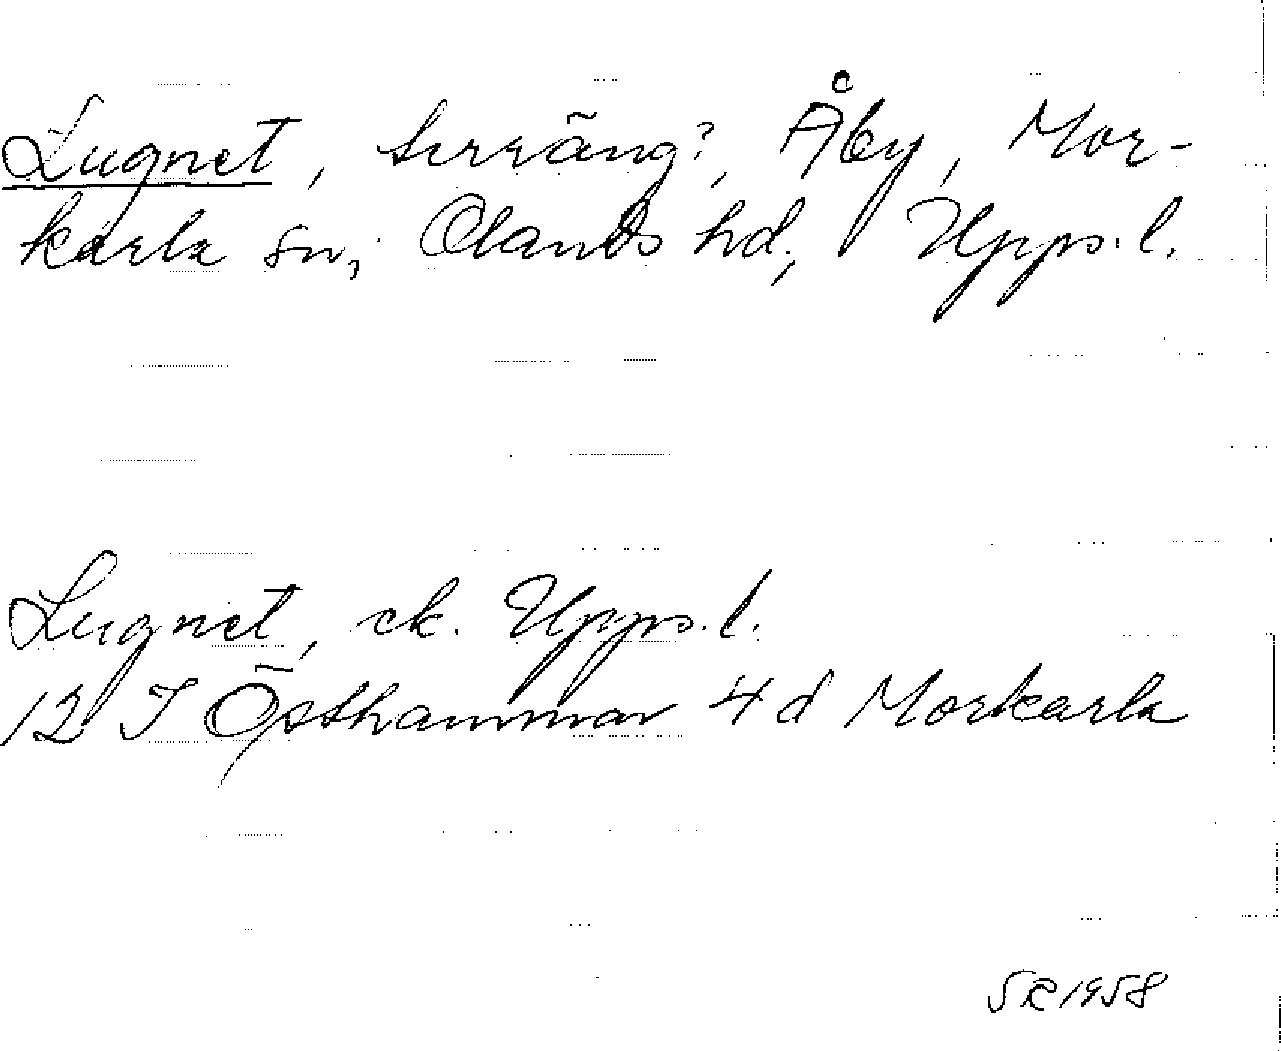 Lugnet, terräng?, Åby, Mor-
karla sn, Olands hd, Upps.l.
Lugnet, ek. Upps.l.
12 I Östhammar 4d Morkarla
SR 1958